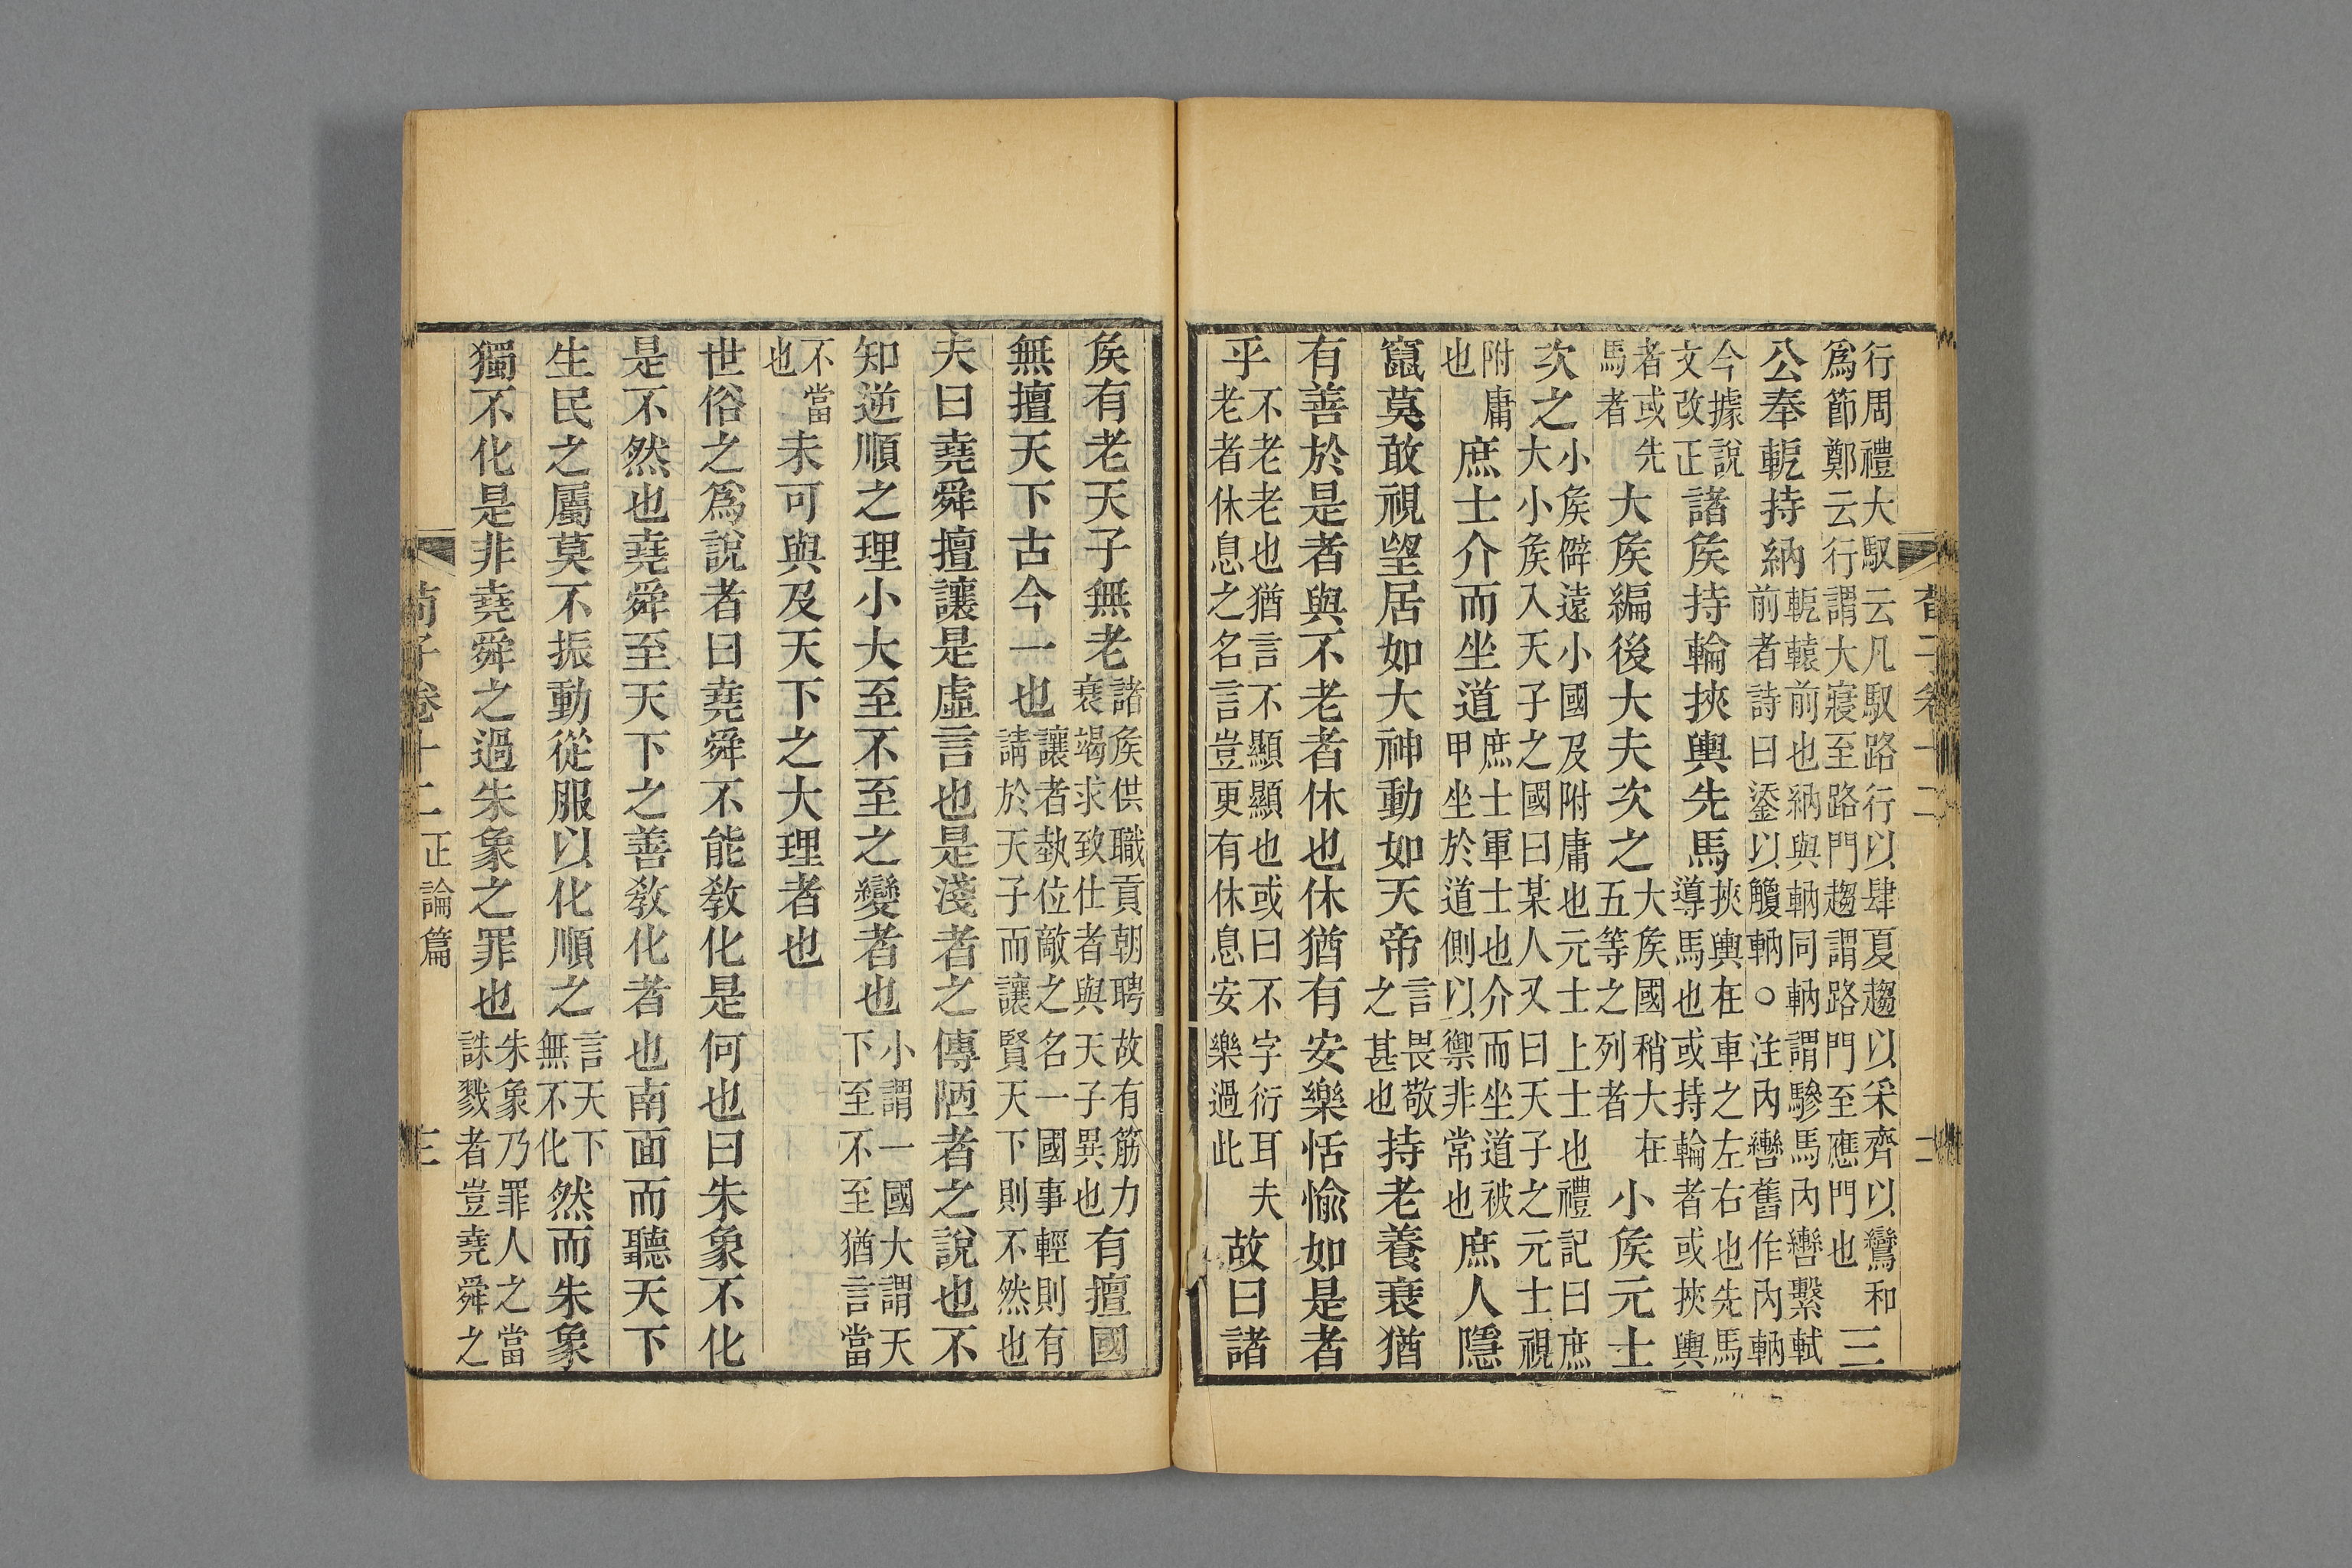 行周禮大馭云凡馭路行以肆夏趨以采齊以鸞和爲節鄭云行謂大寢至路門趨謂路門至應門也三
公奉軶持納軶轅前也納與軜同軜謂驂馬內轡繫軾前者詩曰鋈以觼軜○注內轡舊作內軜
今據說文改正諸矦持輪挾輿先馬挾輿在車之左右也先馬導馬也或持輪者或挾輿
者或先馬者大矦編後大夫次之大矦國稍大在五等之列者小矦元士
次之小矦僻遠小國及附庸也元士上士也禮記曰庶大小矦入天子之國曰某人又曰天子之元士視
附庸也庶士介而坐道庶士軍士也介而坐道被甲坐於道側以禦非常也庶人隱
竄莫敢視望居如大神動如天帝言畏敬之甚也持老養衰猶
有善於是者與不老者休也休猶有安樂恬愉如是者
乎不老老也猶言不顯顯也或曰不字衍耳夫老者休息之名言豈更有休息安樂過此故曰諸
矦有老天子無老諸矦供職貢朝聘故有筋力衰竭求致仕者與天子異也有擅國
無擅天下古今一也讓者埶位敵之名一國事輕則有請於天子而讓賢天下則不然也
夫曰堯舜擅讓是虛言也是淺者之傳陋者之說也不
知逆順之理小大至不至之變者也小謂一國大謂天下至不至猶言當
不當也未可與及天下之大理者也
世俗之爲說者曰堯舜不能敎化是何也曰朱象不化
是不然也堯舜至天下之善敎化者也南面而聽天下
生民之屬莫不振動從服以化順之言天下無不化然而朱象
獨不化是非堯舜之過朱象之罪也朱象乃罪人之當誅戮者豈堯舜之
荀子卷十二正論篇